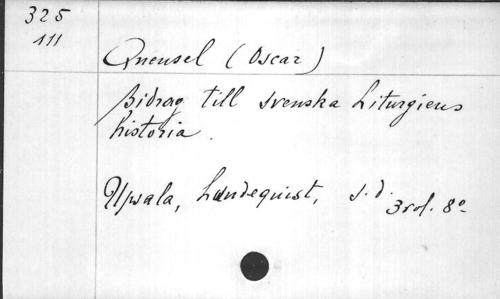 325
111
Quensel (Oscar)
Bidrag till svenska Liturgiens
historia.
Upsala, Lundequist, s.d.
3 vol. 8º